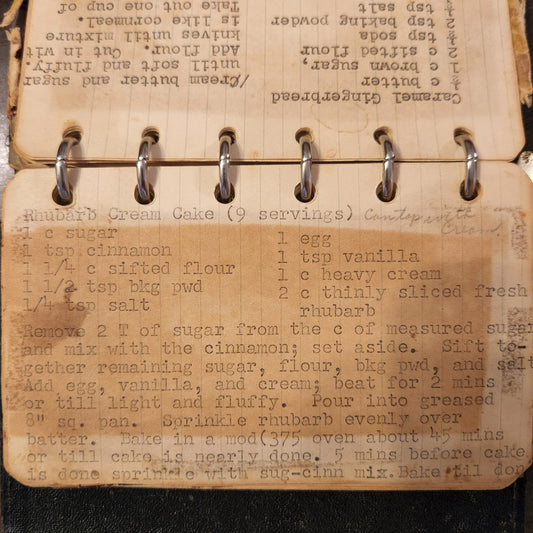 Caramel Gingerbread
c butter
1 c brown sugar,
2 c sifted flour
tsp soda
2 tsp baking powder
tsp salt
/Cream butter and sugar
until soft and fluffy.
Add flour. Cut in wit
knives until mixture
is like cornmeal.
Take out one cup of
Rhubarb Cream Cake (9 servings) Can top with
Cream.
1 c sugar
1 tsp cinnamon
1 1/4 c sifted flour
1 1/2 tsp bkg pwd
1/4 tsp salt
1 egg
1 tsp vanilla
1 c heavy cream
2 c thinly sliced fresh
rhubarb
Remove 2 T of sugar from the c of measured sugar
and mix with the cinnamon; set aside. Sift to-
gether remaining sugar, flour, bkg pwd, and salt
Add egg, vanilla, and cream; beat for 2 mins
or till light and fluffy. Pour into greased
8" sq. pan. Sprinkle rhubarb evenly over
batter. Bake in a mod(375 oven about 45 mins
or till cake is nearly done. 5 mins before cake
is done sprinkle with sug-cinn mix.Bake til don